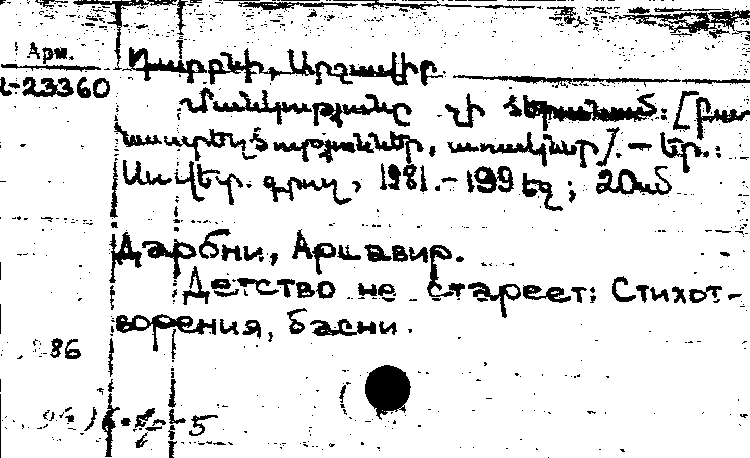 Арм.
Դարբնի, Արշավիր
23360
Մանկությունը չի ծերանամ: [Բա
նաստեղծություններ, առակներ]. — Եր.:
Սովետ. գրող, 1981. - 199 եզ; 20սմ
Дарбни, Аршавир.
Детство не стареет: Стихот-
ворения, басни.
86